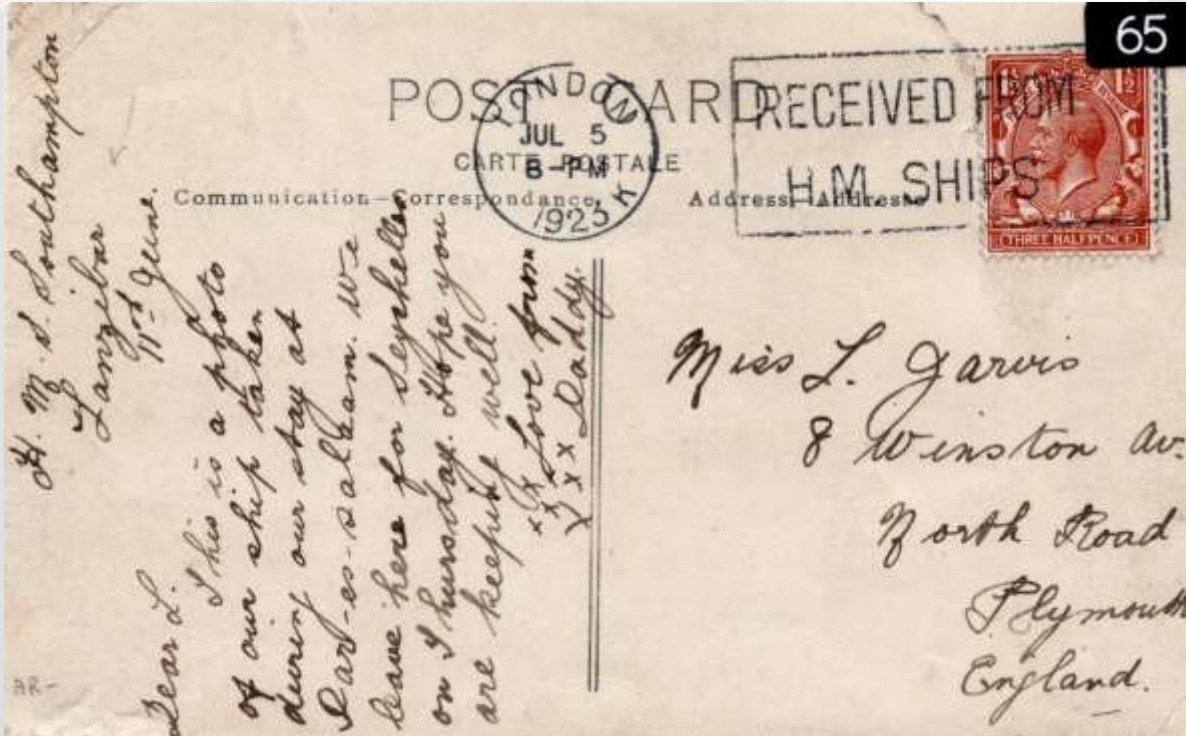 65
POST CARD
CARTE POSTALE
Communication-Correspondance. Address, Addresse
LONDON
JUL 5
8-PM
1923
K
RECEIVED FROM
H.M. SHIPS
1½
POSTAGE
1½
(THREE HALFPENCE)
H. M. S. Southampton
Zanzibar
June.
Dear L.
This is a photo
of our ship taken
during our stay at
Dar-es-salleam. We
leave here for Seyshelles
on Thursday. Hope you
are keeping well.
Love from
x x x Daddy.
x x x
Miss L. Jarvis
8 Winston Av.
North Road
Plymouth
England.